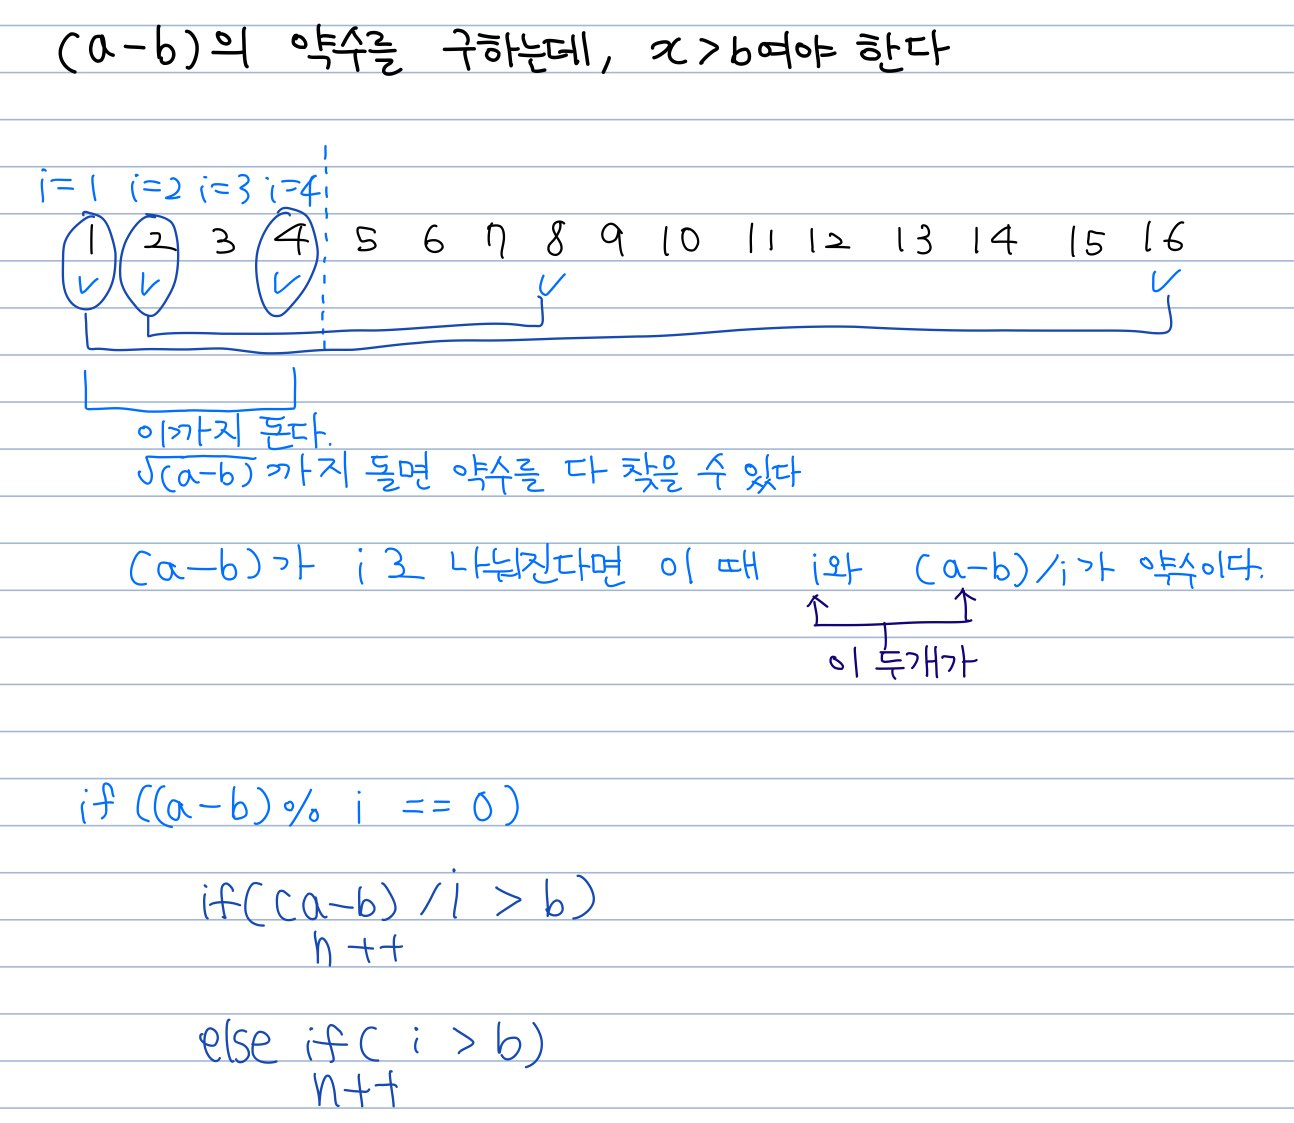 (a-b)의 약수를 구하는데, x>b여야 한다
i=1 i=2 i=3 i=4
1 2 3 4 5 6 7 8 9 10 11 12 13 14 15 16
이까지 돈다.
√(a-b) 까지 돌면 약수를 다 찾을 수 있다
(a-b)가 i로 나눠진다면 이 때 i와 (a-b)/i가 약수이다.
이 두개가
if ((a-b)% i == 0)
if((a-b) /i > b)
n++
else if( i > b)
n++